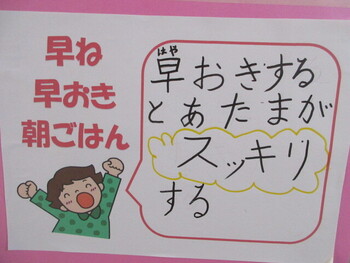 早ね
早おき
朝ごはん
はや
早おきする
とあたまが
スッキリ
する